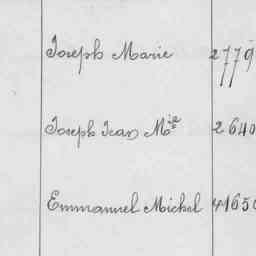 Joseph Marie 2779
Joseph Jean Mie 2640
Emmanuel Michel 41650